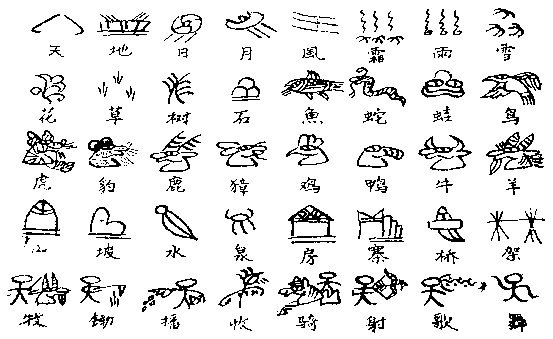 天 地 日 月 風 霜 雨 雪
花 草 树 石 魚 蛇 蛙 鸟
虎 豹 鹿 獐 鸡 鸭 牛 羊
坡 水 泉 房 寨 桥 架
牧 锄 播 收 骑 射 歌